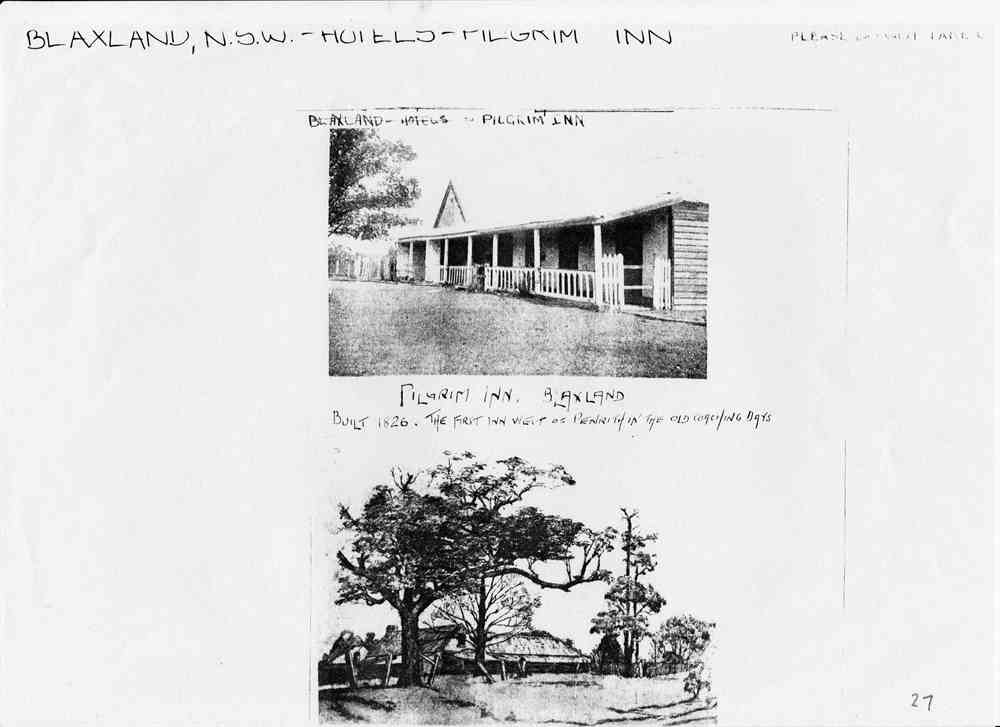 BLAXLAND, N.S.W. - HOTELS - PILGRIM INN
PLEASE
BLAXLAND - HOTELS - PILGRIM INN
PILGRIM INN. BLAXLAND
BUILT 1826. THE FIRST INN WEST OF PENRITH IN THE OLD COACHING DAYS
27